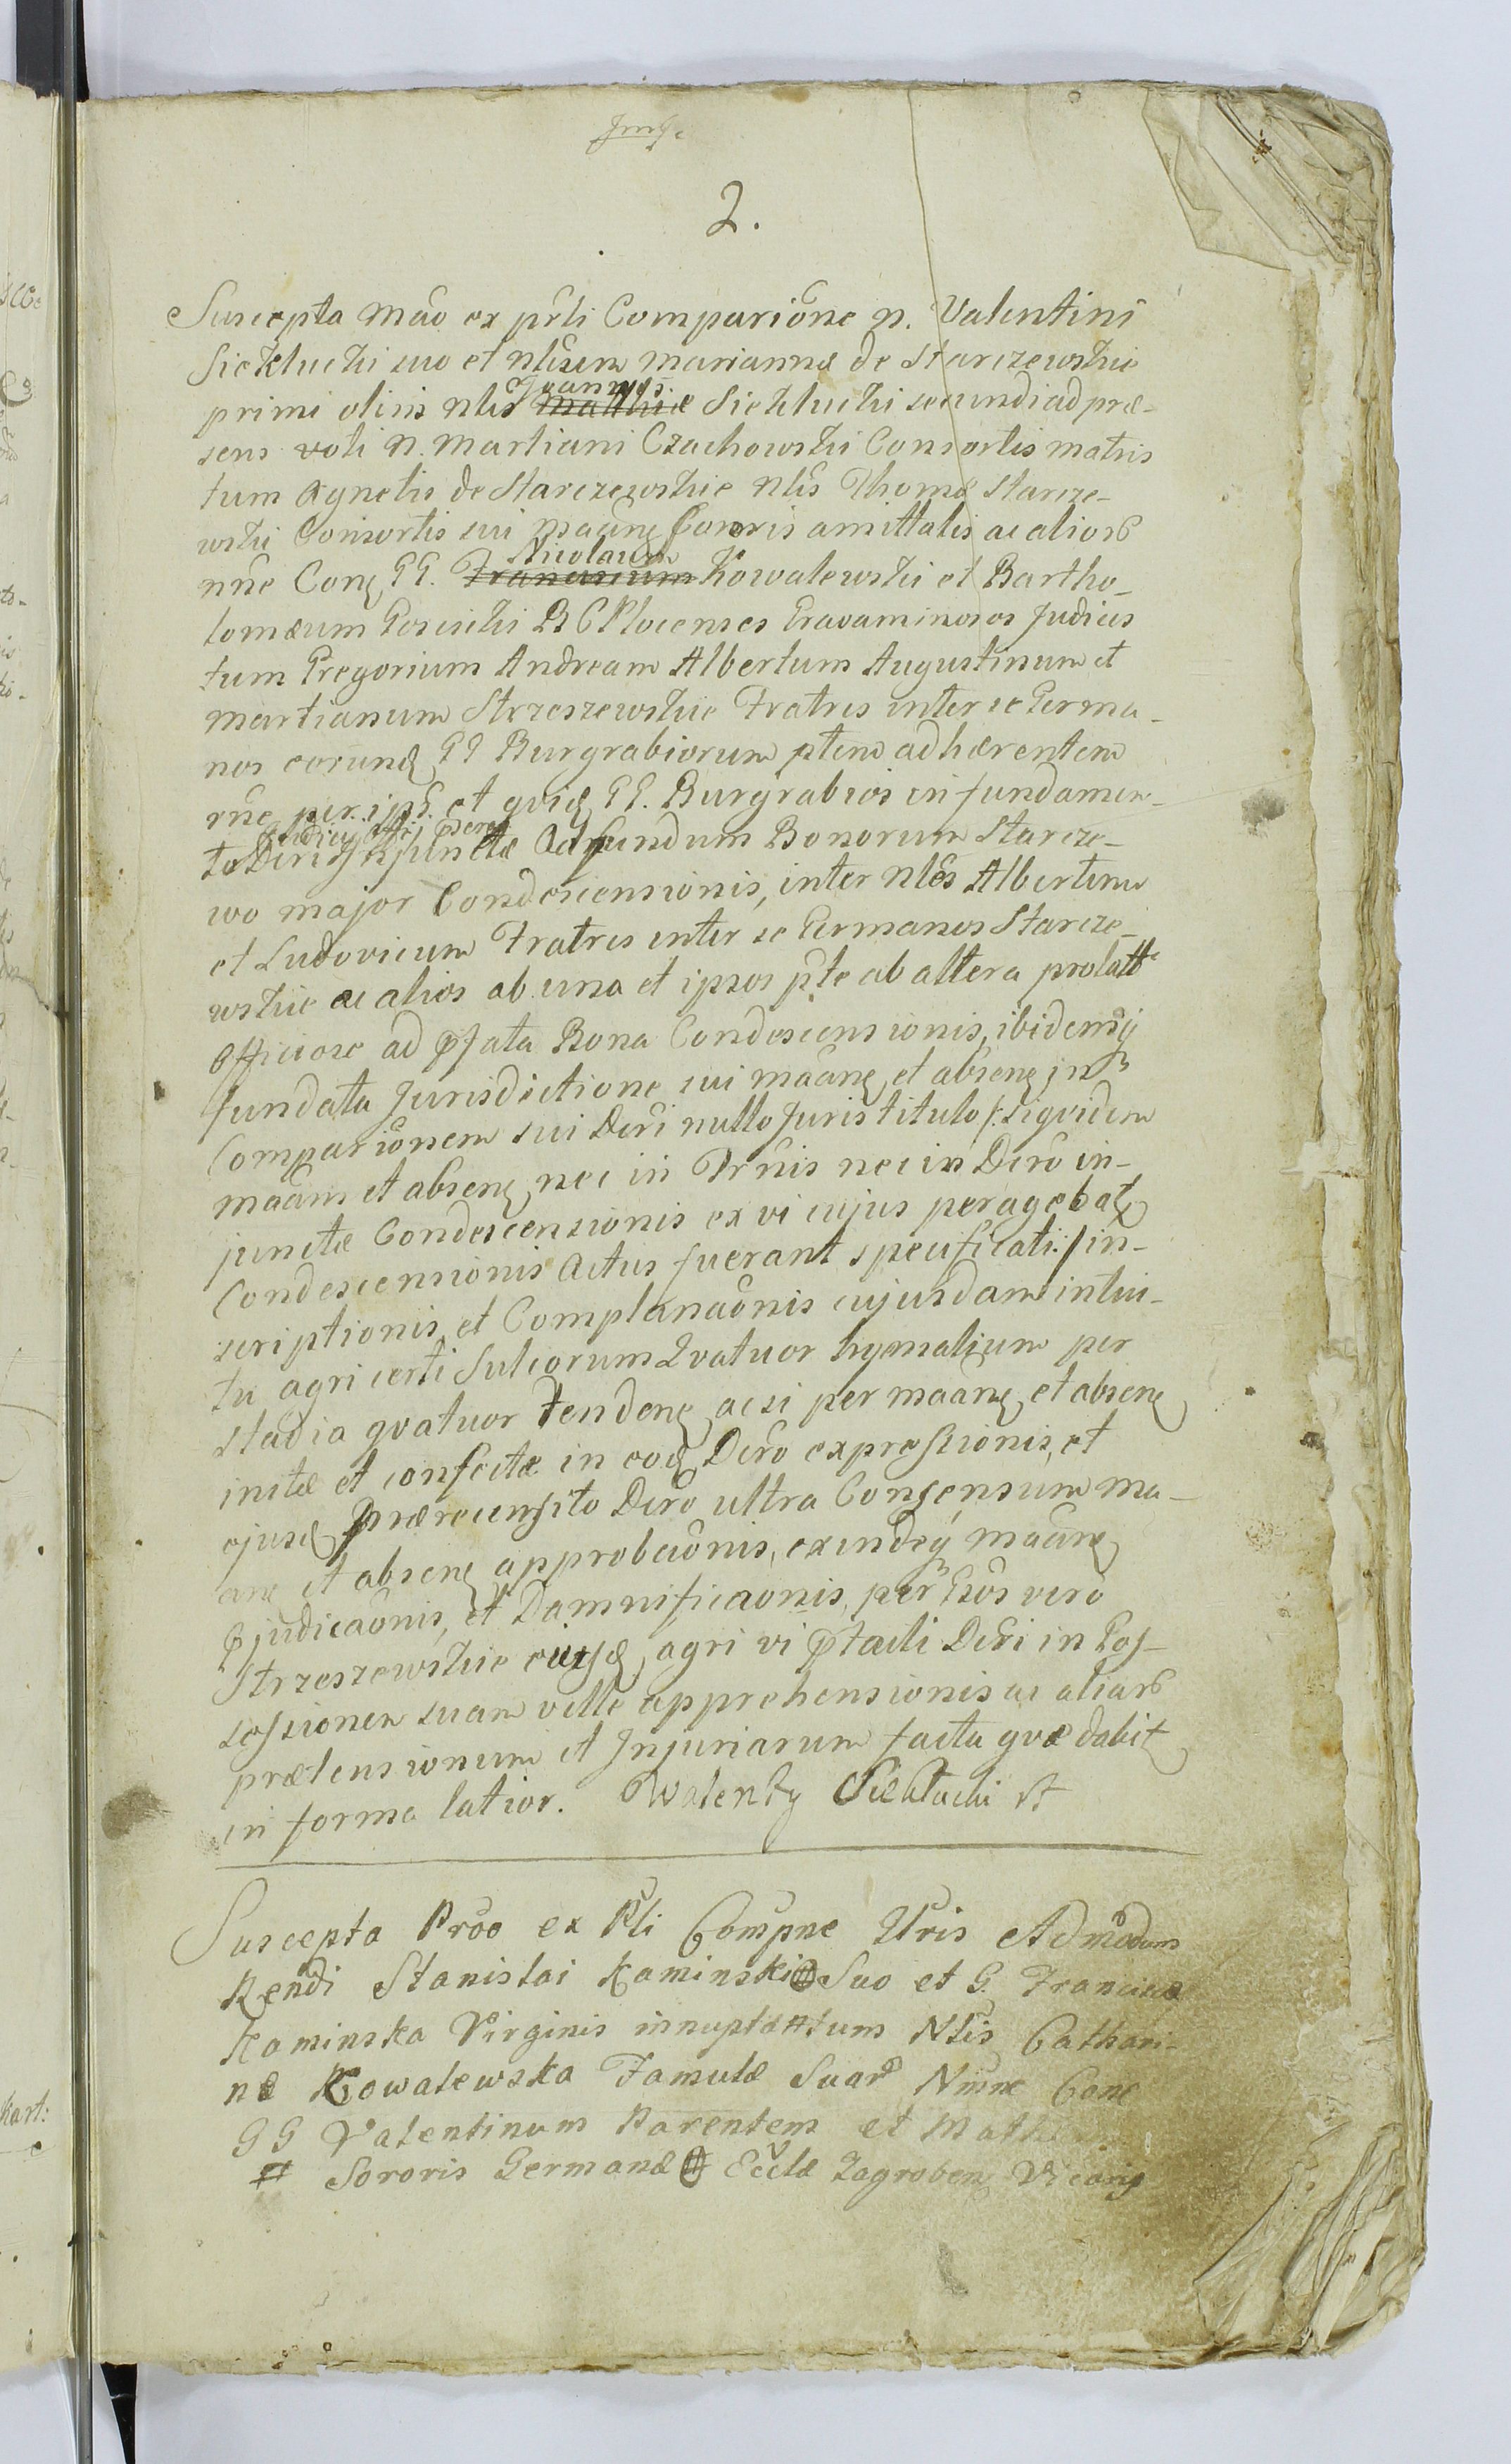 2.
Suscepta Mão ex pñli Comparitione n. Valentini
Siekluchi suo et nlium Mariannæ de Starczewskie
primi olim nlis Joannis Matthiæ Siekluchi secundi ad præ-
sens voti N. Martiani Czachowski Consortis matris
tum Agnetis de Starczewskie Nlis Thomæ Starcze-
wski Consortis sui amittalis ac alior
nñe Con GG. Nicolaum Franciscum Kowalewski et Bartho-
lomæum Gosciski B C Plocenses Gravaminosos Judices
tum Gregorium Andream Albertum Augustinum et
Martianum Strzeszewskie Fratres inter se Germa-
nos eorund GG Burgrabiorum ptem adhærentem
rñe per ips et qvid GG. Burgrabios in fundamen-
to Dcri injunctæ Ad fundum Bonorum Starcze-
wo major Condescensionis, inter nlēs Albertum
et Ludovicum Fratres inter se Germanos Starcze-
wskie ac alios ab una et ipsos pte ab altera prolatæ
officiose ad pfata Bona Condescensionis, ibidemq
fundata Jurisdictione sui maãne et absene in
Comparionem sui Dcri nullo Juris titulo /: siqvidem
maãm et absene nec in Prñis nec in Dcrõ in-
junctæ Condescensionis ex vi cujus peragebat
Condescensionis Actus fuerant specificati :/ in-
scriptionis et Complanaõnis cujusdam intui-
tu agri certi Sulcorum Qvatuor hyemalium per
stadia qvatuor tendene ac si per maãne et absene
initæ et confectæ in eod Dcrõ expressionis, et
ejusd prærecensito Dcrõ ultra Consensum ma-
ane et absene approbaõnis, exindeq maãne
pjudicaõnis, et Damnificaõnis, per Gsõs vero
Strzeszewskie ejusd agri vi ptacti Dcri in Pos-
sessionem suam velle apprehensionis ac aliar
prætensionum et Injuriarum facta qvæ dabit
in forma latior. Walenty Siekluchi
Suscepta Prõo ex Pñli Compne Admodum
Rendi Stanislai Kaminski # Suo et G. Franciscæ
Kaminska Virginis innuptæ # tum Nlis Cathari-
næ Kowalewska Famulæ Suar Nmne Cone
GG Valentinum Parentem et
# Sororis Germanæ # Eccłæ Zagroben Vicarij